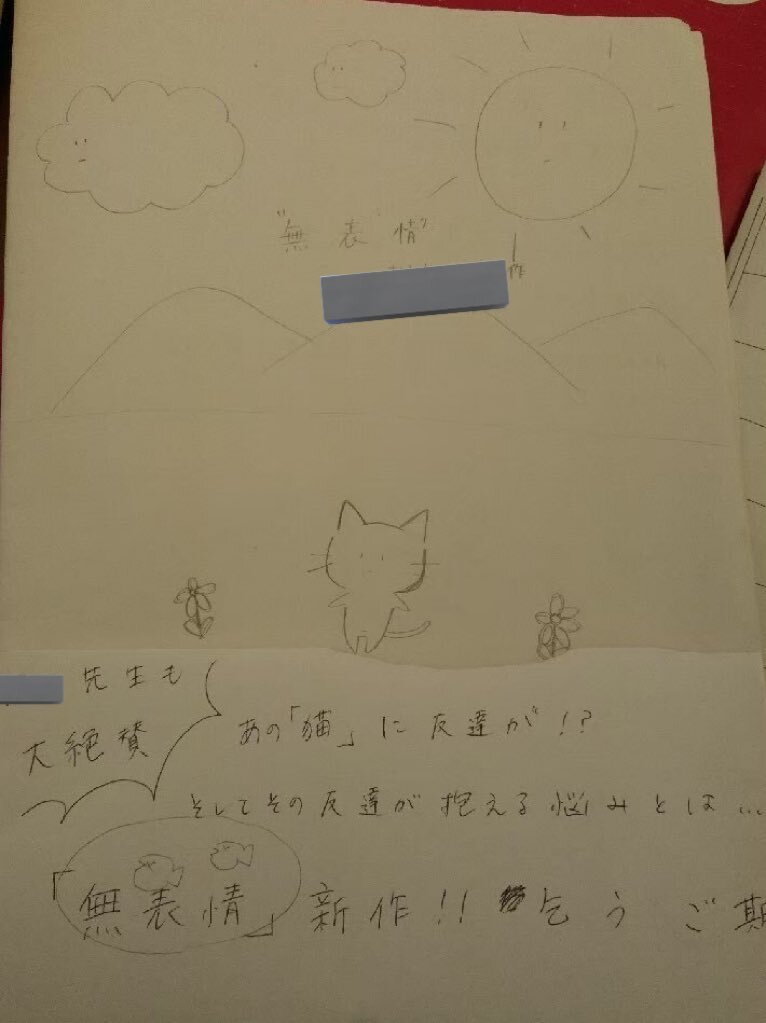 "無表情"
作
先生も
大絶賛
あの「猫」に友達が!?
そしてその友達が抱える悩みとは…
「無表情」新作!! 乞うご期